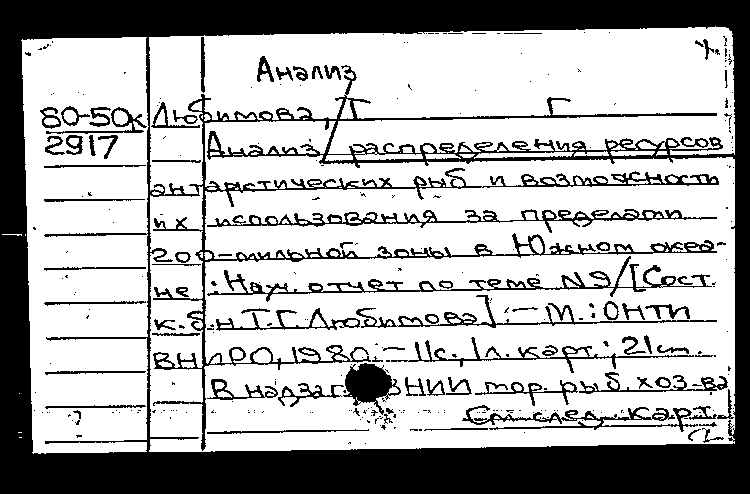 Анализ
80-50к Любимова, Т Г
2917 Анализ / распределения ресурсов
антарктических рыб и возможности
их использования за пределами
200-мильной зоны в Южном океа-
не : Науч. отчет по теме N9/[Сост.
к.б.н. Т.Г. Любимова]. - М.: ОНТИ
ВНИРО, 1980. - 11с., 1л. карт.; 21см.
В надзаг. ВНИИ мор. рыб. хоз-ва
См след. карт.